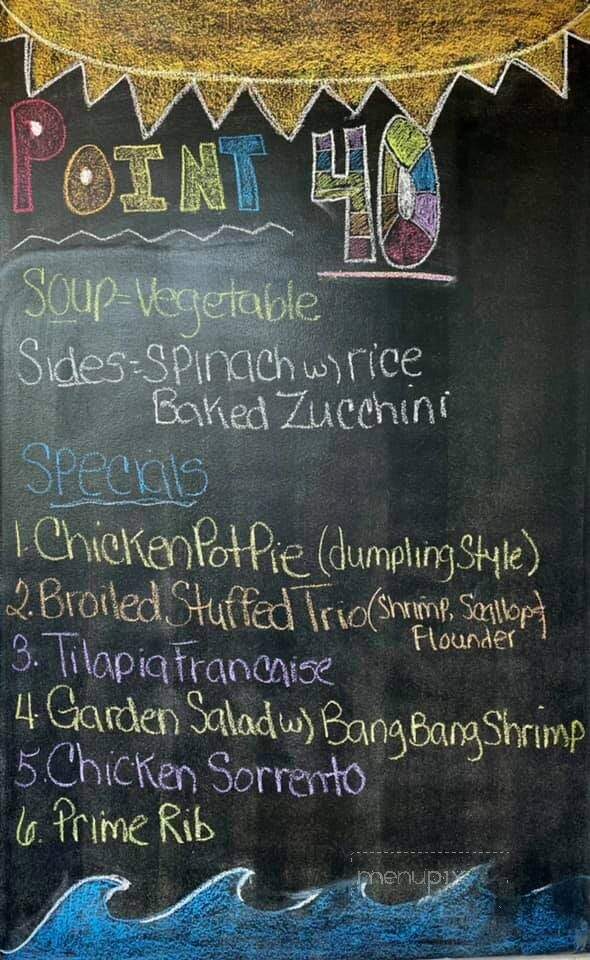 POINT 40
Soup=Vegetable
Sides=Spinach w) rice
Baked Zucchini
Specials
1. Chicken Pot Pie (dumpling Style)
2. Broiled Stuffed Trio (Shrimp, Scallop &
Flounder
3. Tilapia Francaise
4. Garden Salad w) Bang Bang Shrimp
5. Chicken Sorrento
6. Prime Rib
menupix